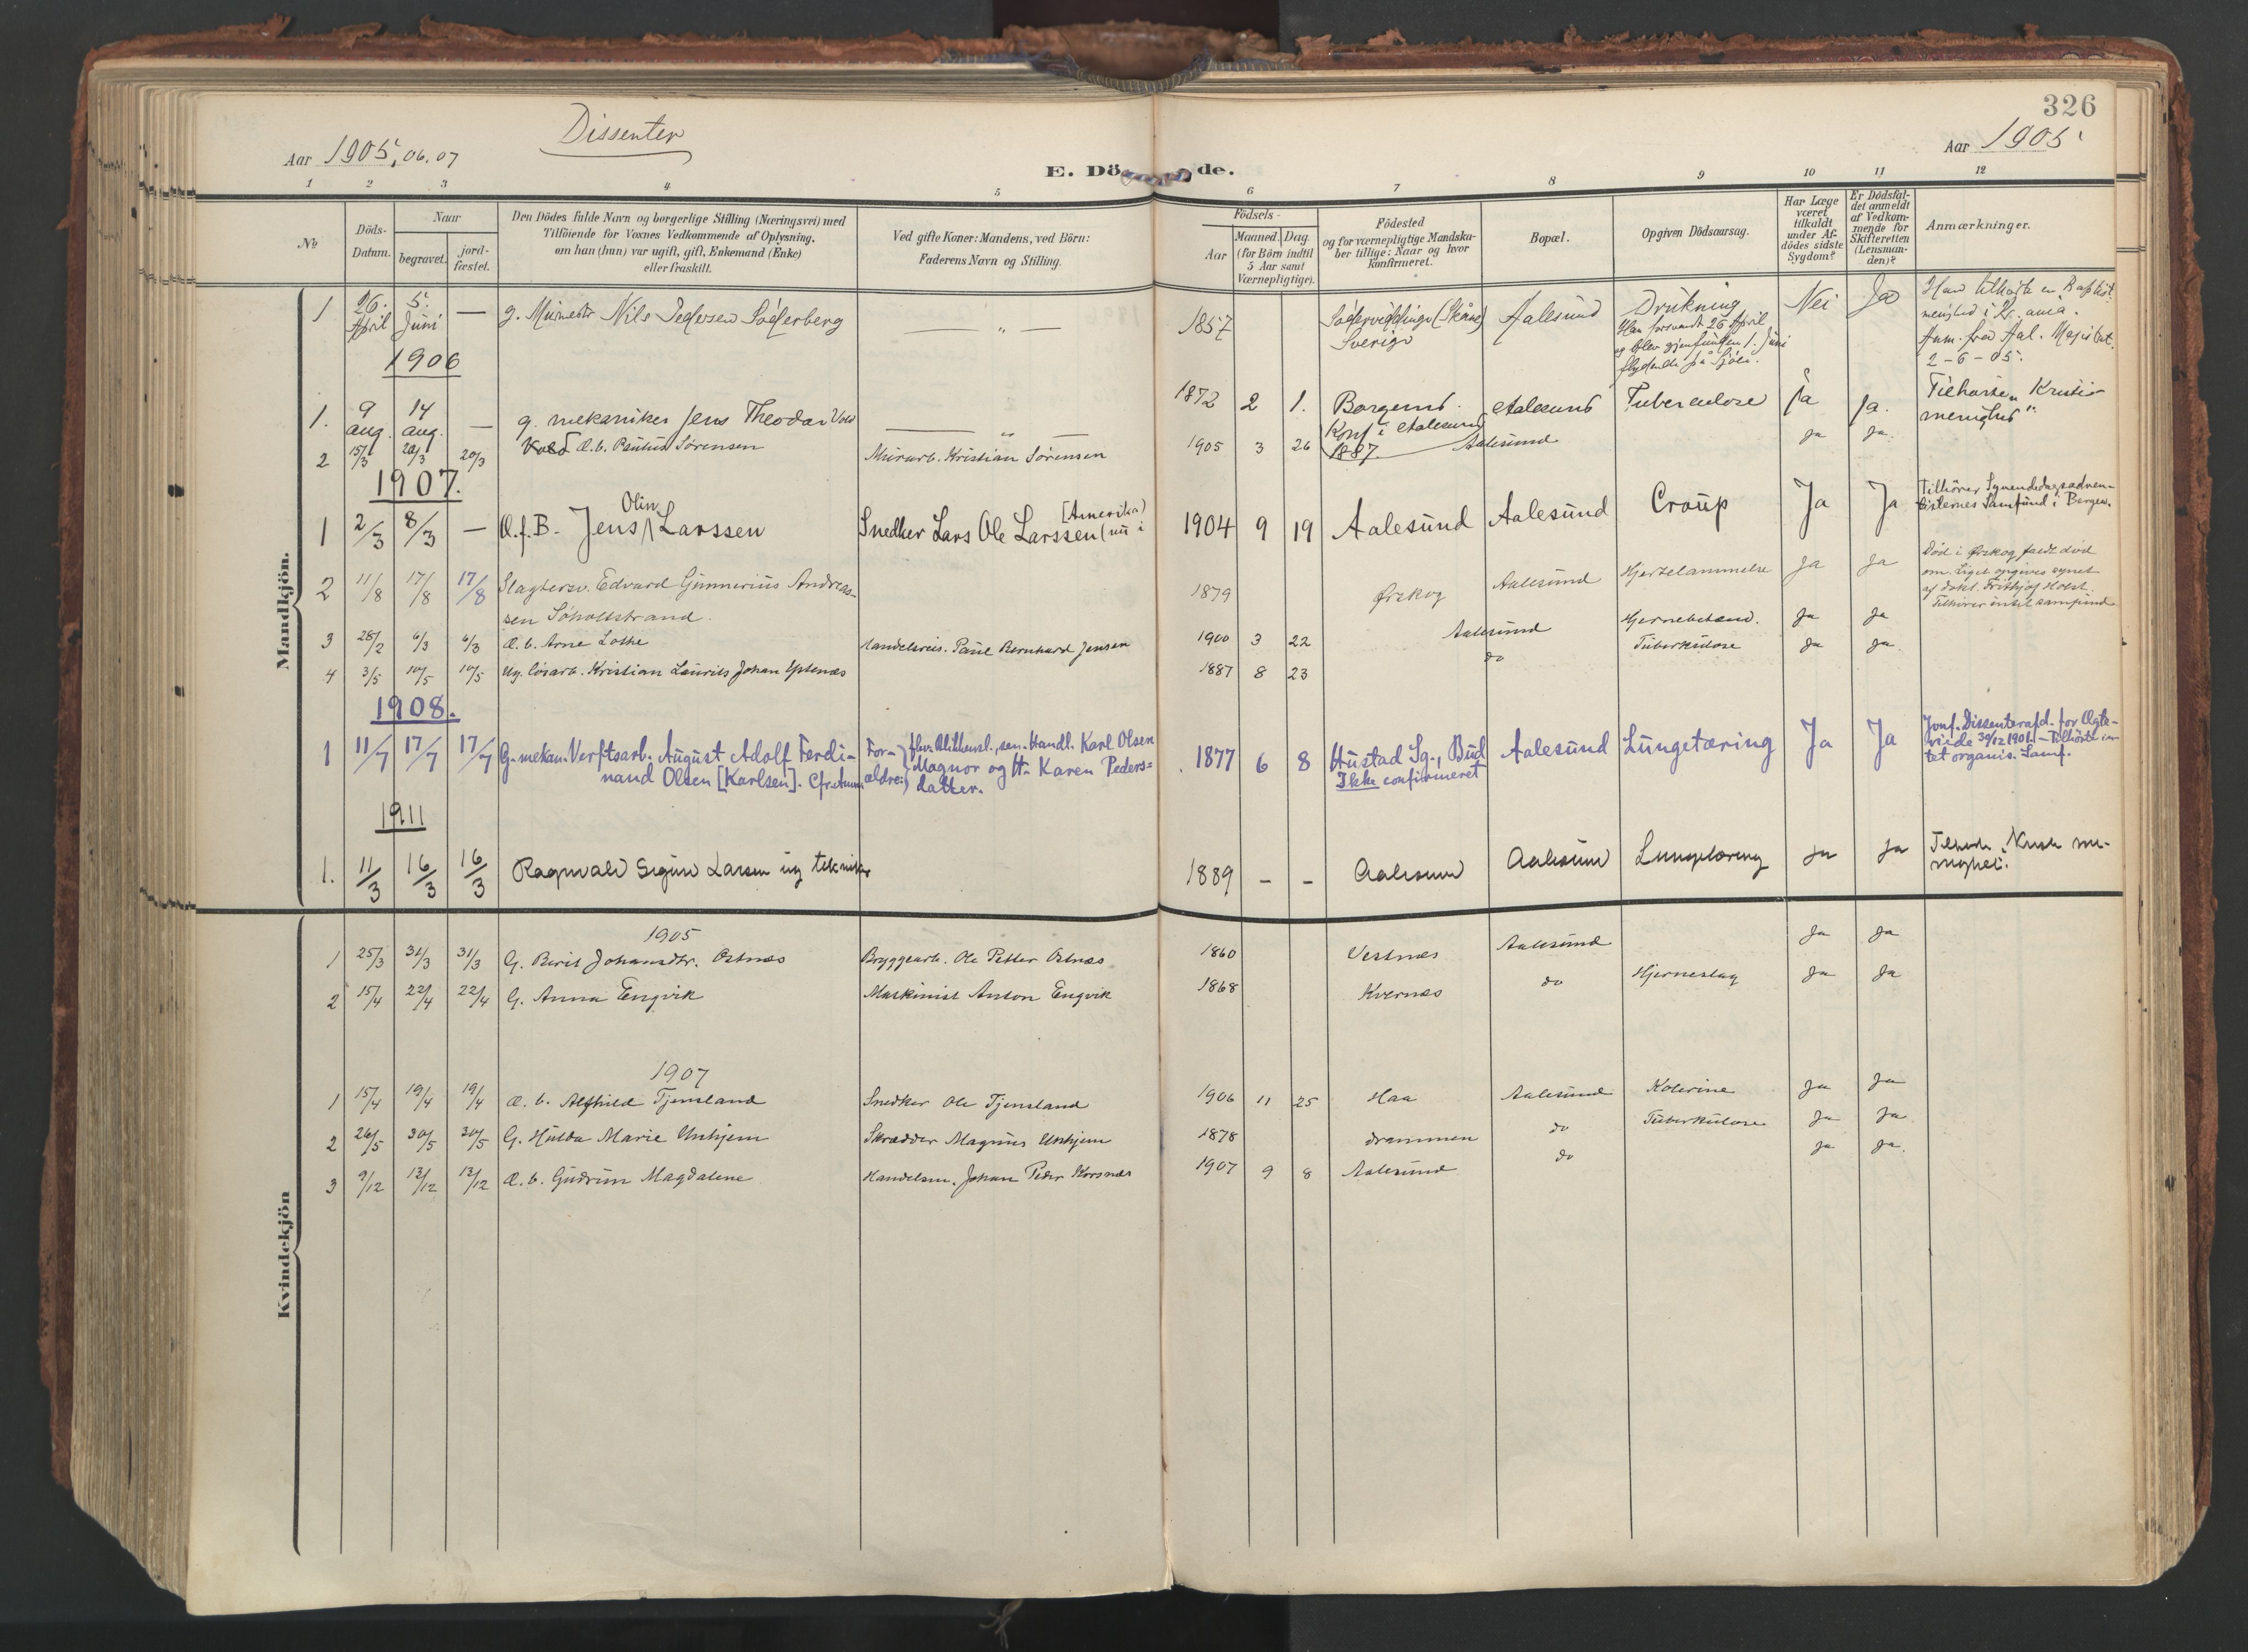 326
Dissenter
Aar 1905, 06. 07
Aar 1905
E. Dö de.
1 2 3 4 5 6 7 8 9 10 11 12
No
Döds-
Datum.
Naar
begravet.
jord-
fæstet.
Den Dödes fulde Navn og borgerlige Stilling (Næringsvei) med
Tilföiende for Voxnes Vedkommende af Oplysning,
om han (hun) var ugift, gift, Enkemand (Enke)
eller fraskilt.
Ved gifte Koner: Mandens, ved Börn:
Faderens Navn og Stilling.
Födsels-
Aar
Maaned. Dag.
(for Börn indtil
5 Aar samt
Værnepligtige).
Födested
og for værnepligtige Mandska-
ber tillige: Naar og hvor
konfirmeret.
Bopæl.
Opgiven Dödsaarsag.
Har Læge
været
tilkaldt
under Af-
dödes sidste
Sygdom?
Er Dödsfal-
det anmeldt
af Vedkom-
mende for
Skifteretten
(Lensman-
den)?
Anmærkninger.
Mandkjön.
1 26. April 5. Juni — g. Murmester Nils Pedersen Söderberg — „ — 1857 (Skåne) Sverige Aalesund Drukning Nei Ja
Han forsvandt 26 April
og blev gjenfunden 1. Juni
flydende på Sjöen.
Han tilhörte en Baptist
menighed i
Anm. fra Aal. Magistrat
2-6-05.
1906
1. 9 aug. 14 aug. — g. mekaniker Jens Theodor Vold — „ — 1872 2 1. Borgund. Aalesund Tuberculose Ja Ja.
Konf i Aalesund
1887.
Tilhörte „Kristi
menighed".
2 15/3 20/3 20/3 Vold Æ. b. Paulus Sørensen Murarb. Kristian Sørensen 1905 3 26 Aalesund Ja Ja.
1907.
1 2/3 8/3 — Æ.f.B. Jens Olin Larssen Snedker Lars Ole Larssen (nu i [Amerika) 1904 9 19 Aalesund Aalesund Croup Ja Ja
Tilhører Syvendedagsadven-
tisternes Samfund i Bergen.
2 11/8 17/8 17/8 Slagtersv. Edvard Gunnerius Andreas-
sen Søholtstrand. 1879 Ørskog Aalesund Hjertelammelse Ja Ja
Død i Ørskog faldt død
om. Liget opgives synet
af dokt. Frithjof Holst.
Tilhører intet samfund
3 28/2 6/3 6/3 Æ. b. Arne Lothe Handelsreis. Paul Bernhard Jensen 1900 3 22 Aalesund Hjernebetænd. Ja Ja
4 3/5 10/5 10/5 Ug. løsarb. Kristian Laurits Johan Uptenæs 1887 8 23 do Tuberkulose Ja Ja.
1908.
1 11/7 17/7 17/7 G. mekan. Verftsarb. August Adolf Ferdi-
nand Olsen [Karlsen]. Cfr. Anm.
For-
ældre:
Blikkensl., sen. Handl. Karl Olsen
Magnor og H. Karen Peders-
datter.
1877 6 8 Hustad Sg., Bud Aalesund Lungetæring Ja Ja
Ikke confirmeret
Jvnf. Dissenterafd. for Ægte-
viede 30/12 1901. - Tilhörte in-
tet organis. Samf.
1911
1. 11/3 16/3 16/3 Ragnvald Sigurd Larsen ug tekniker 1889 – – Aalesund Aalesund Lungetæring Ja Ja
Kvindekjön
1905
1 25/3 31/3 31/3 G. Berit Johansdtr. Ostnæs Bryggearb. Ole Petter Ostnæs 1860 Vestnæs Aalesund Ja Ja
2 15/4 22/4 22/4 G. Anna Engvik Maskinist Anton Engvik 1868 Kvernæs do Hjerneslag Ja Ja
1907
1 15/4 19/4 19/4 Æ. b. Alfhild Tjensland Snedker Ole Tjensland 1906 11 25 Haa Aalesund Kolerine Ja Ja
2 26/5 30/5 30/5 G. Hulda Marie Unhjem Skrædder Magnus Unhjem 1878 Drammen do Tuberkulose Ja Ja
3 9/12 13/12 13/12 Æ. b. Gudrun Magdalene Handelsm. Johan Peder Korsnæs 1907 9 8 Aalesund do Ja Ja.